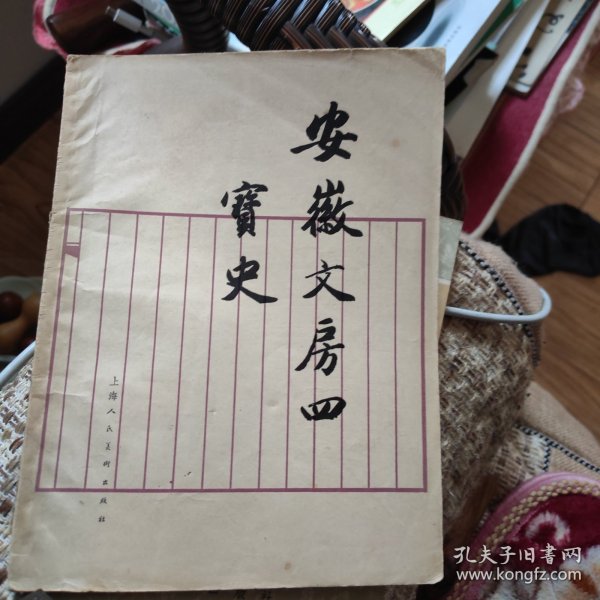 安徽文房四
寶史
上海人民美術出版社
孔夫子旧书网
www.kongfz.com